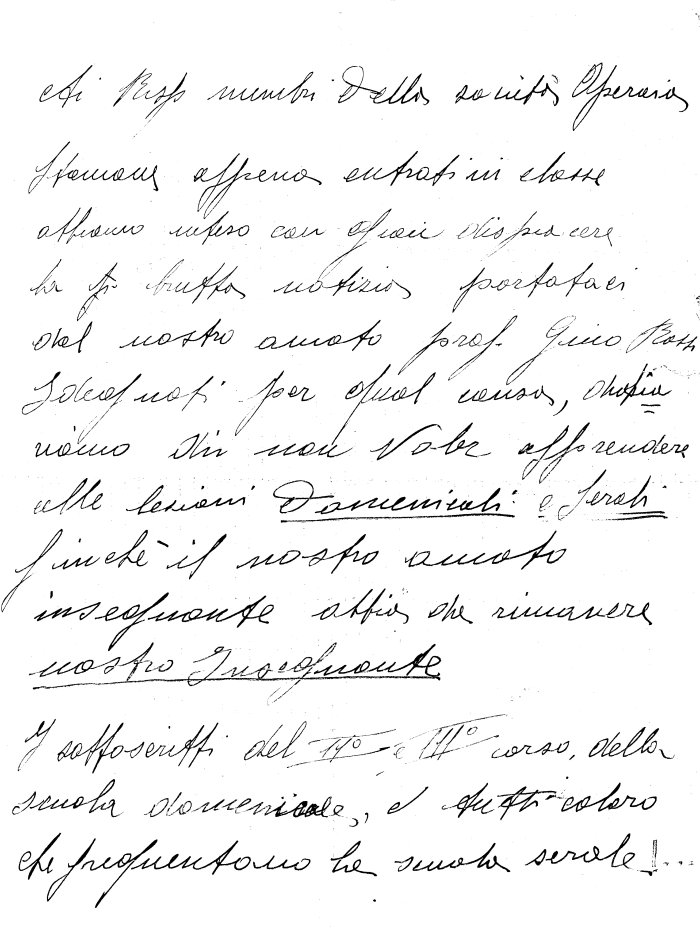 Ai Resp membri della società Operaia
Stamane appena entrati in classe
abbiamo inteso con gran dispiacere
la brutta notizia portataci
dal nostro amato prof. Gino Rossi
Sdegnati per qual causa, dichia=
riamo di non voler apprendere
alle lezioni Domenicali e Serali
finchè il nostro amato
insegnante abbia da rimanere
nostro Insegnante
I sottoscritti del II° e III° corso, della
scuola domenicale, e tutti coloro
che frequentano la scuola serale!...